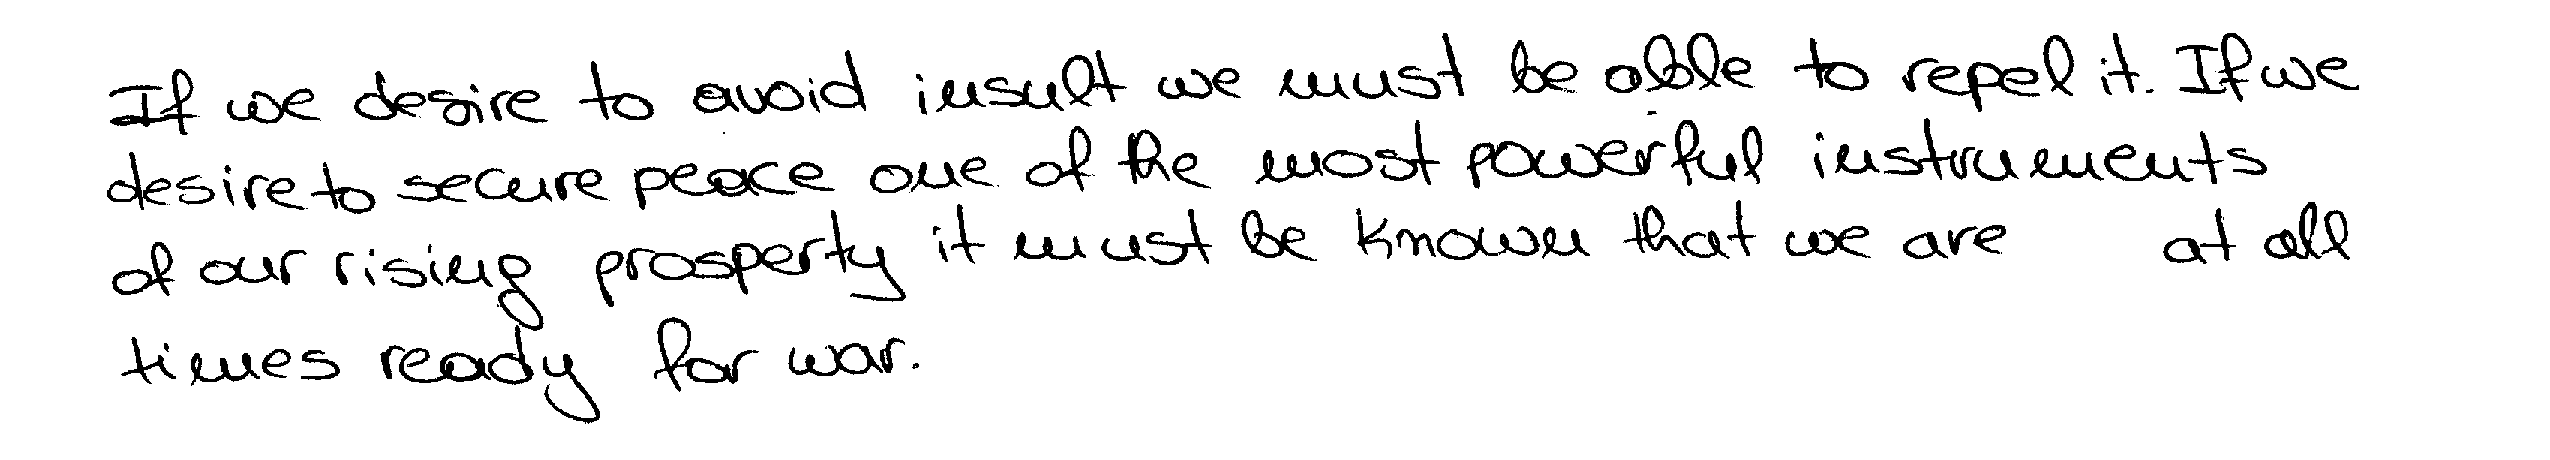 If we desire to avoid insult we must be able to repel it. If we
desire to secure peace one of the most powerful instruments
of our rising prosperty it must be known that we are at all
times ready for war.